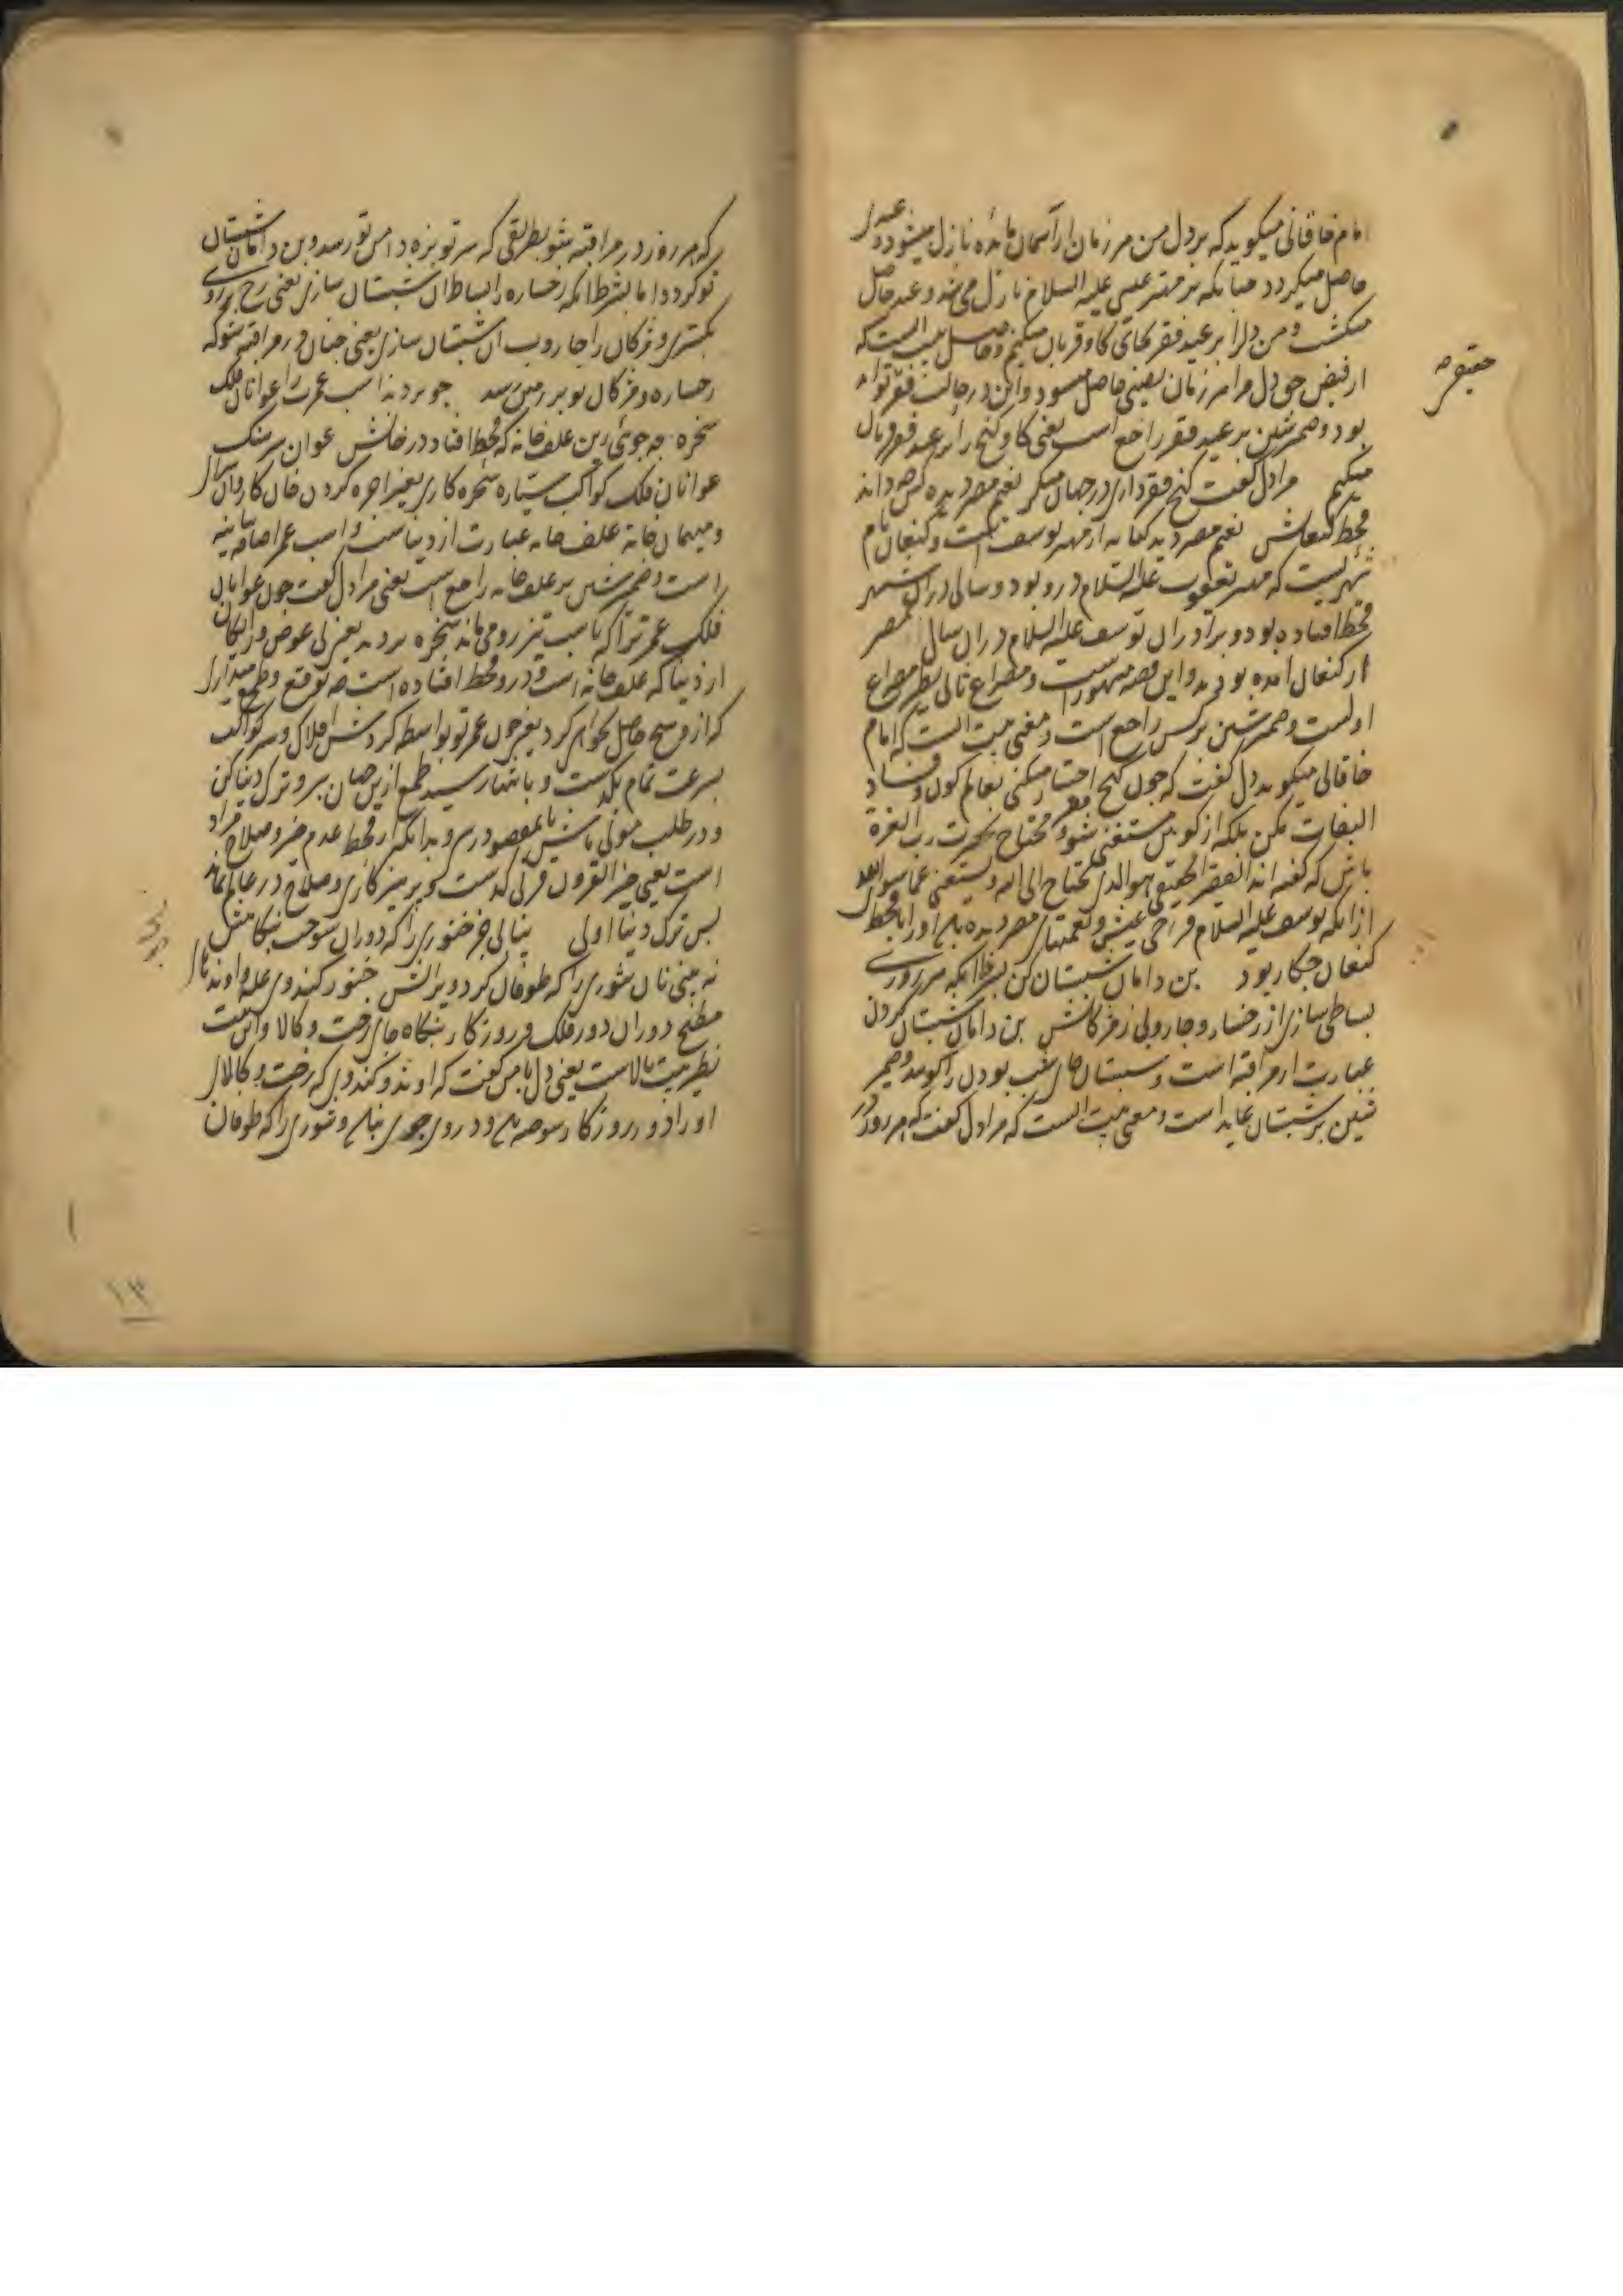 امام خاقانی میگوید که بر دل من هر زمان از آسمان مائده نازل میشود و عید
حاصل میگردد چنانکه بر مهتر عیسی علیه السلام نازل می شد و عید حاصل
میگشت و من دلرا بر عید فقر بجای گاو قربان میکنم و حاصل بیت انست که
از فیض حق دل مرا هر زمان فیضی حاصل میشود و این در حالت فقر تواند
بود و ضمیر شین بر عید فقر راجع است یعنی گاو گنج را بر عید فقر قربان
میکنم مرا دل گفت گنج فقر داری در جهان منگر نعیم مصر دیده کس چه داند
قحط کنعانش نعیم مصر دیده کنایه از مهتر یوسف است و کنعان نام
شهریست که مهتر یعقوب علیه السلام درو بود و سالی در آن شهر
قحط افتاده بود و برادران یوسف علیه السلام در ان سال بمصر
از کنعان آمده بودند و این قصه مشهور است و مصراع ثانی نظیر مصراع
اولست و ضمیر شین بر کس راجع است و معنی بیت انست که امام
خاقانی میگوید دل گفت که چون گنج فقر اختیار میکنی بعالم کون و فساد
التفات مکن بلکه از کونین مستغنی شو و محتاج بحضرت رب العزة
باش که گفته اند الفقیر الحقیقی هوالذی یحتاج الی الله و یستغنی عما سوی الله
ازانکه یوسف علیه السلام فراخی عیش و نعمتهای مصر دیده باشد او را با قحط
کنعان چکار بود بن دامان شبستان کن بشرط آنکه هر روزی
بساطی سازی از رخسار و جاروبی ز مژگانش بن دامان شبستان کردن
عبارت از مراقبه است و شبستان جای شب بودن را گویند و ضمیر
شین بر شبستان عاید است و معنی بیت انست که مرا دل گفت که هر روز در
که هر روز در مراقبه بشو بطریقی که سر تو بزه دامن تو رسد و بن دامان شبستان
تو گردد اما بشرط آنکه رخساره را بساط ان شبستان سازی یعنی رخ بر وی
بگستری و مژگان را جاروب ان شبستان سازی یعنی چنان در مراقبه شو که
رخساره و مژگان تو بر زمین رسد چو بردند اسب عمرت را عوانان فلک
سخره چه جوئی زین علف خانه که قحط افتاد در خانش عوان سرهنگ
عوانان فلک کواکب سیاره سخره کاری بغیر اجره کردن خان کاروان سرا
و میهمان خانه علف خانه عبارت از دنیا است و اسب عمر اضافه بیانیه
است و ضمیر شین بر علف خانه راجع است یعنی مرا دل گفت چون عوانان
فلک عمر ترا که باسب تیز رو می ماند بسخره بردند یعنی بی عوض و رایگان
از دنیا که علف خانه است و درو قحط افتاده است چه توقع و طمع میداری
که ازو هیچ حاصل نخواهد کرد یعنی چون عمر تو بواسطه گردش افلاک و سیر کواکب
بسرعت تمام بگذشت و بانتها رسید طمع ازین جهان ببر و ترک دنیا کن
و در طلب مولی باش تا بمقصود رسی و بدانکه از قحط عدم خیر و صلاح مراد
است یعنی خیر القرون قرنی گذشت و پرهیز کاری و صلاح در عالم نماند
پس ترک دنیا اولی نیابی جز خنوری را که دوران سوخت بنگاهش
نه بینی نان تنوری را که طوفان کرد ویرانش خنور کندوی غله و آوندهای
مطبخ دوران دور فلک و روزگار بنگاه جای رخت و کالا و این بیت
نظیر بیت بالاست یعنی دل با من گفت که آوند و کندوی که رخت و کالای
او را دور روزگار سوخته باشد درو چیزی نیابی و تنوری را که طوفان
۱۳